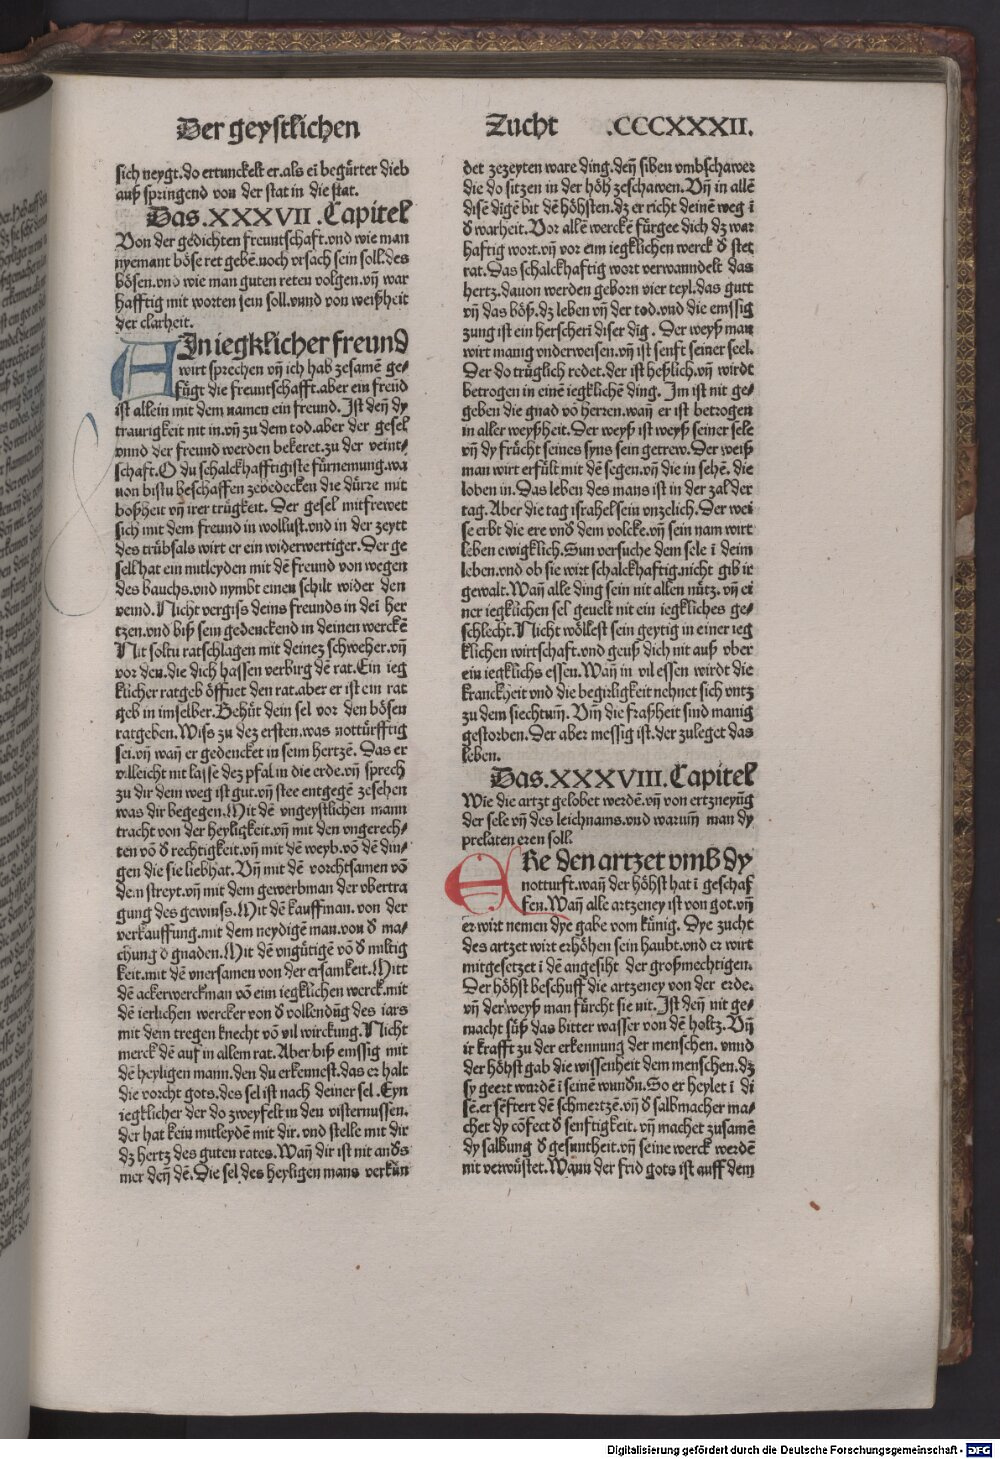 Der geystlichen
sich neygt.do ertunckelt er.als ei begürter dieb
auß springend von der stat in die stat.
Das.XXXVII.Capitel
Von der gedichten freuntschaft.vnd wie man
nyemant böse ret gebē.noch vrsach sein soll.des
bösen.vnd wie man guten reten volgen.vñ war
hafftig mit worten sein soll.vnnd von weißheit
der clarheit.
AIn iegklicher freund
wirt sprechen vñ ich hab zesamē ge-
fügt die freuntschafft.aber ein freūd
ist allein mit dem namen ein freund. Ist deñ dy
traurigkeit nit in.vñ zu dem tod.aber der gesel
vnnd der freund werden bekeret.zu der veint-
schaft.O du schalckhafftigiste fürnemung.wa
uon bistu beschaffen zebedecken die dürze mit
boßheit vñ irer trügkeit. Der gesel mitfrewet
sich mit dem freund in wollust.vnd in der zeytt
des trübsals wirt er ein widerwertiger.Der ge
sell hat ein mitleyden mit dē freund von wegen
des bauchs.vnd nymbt einen schilt wider den
veind. Nicht vergiss deins freunds in deī her
tzen.vnd biß sein gedenckend in deinen werckē
Nit soltu ratschlagen mit deinez schweher.vñ
vor den.die dich hassen verbirg dē rat.Ein ieg
klicher ratgeb öffnet den rat.aber er ist ein rat
geb in imselber.Behüt dein sel vor den bösen
ratgeben.Wiss zu dez ersten.was nottürfftig
sei.vñ wañ er gedencket in seim hertzē. Das er
villeicht nit lasse dez pfal in die erde.vñ sprech
zu dir dem weg ist gut.vñ stee entgegē zesehen
was dir begegen.Mit dē vngeystlichen mann
tracht von der heyligkeit.vñ mit den vngerech-
ten võ d rechtigkeit.vñ mit dē weyb.võ dē din-
gen die sie liebhat. Vñ mit dē vorchtsamen võ
dem streyt.vñ mit dem gewerbman der vbertra
gung des gewinß.Mit dē kauffman. von der
verkauffung.mit dem neydigē man.von d ma-
chung d gnaden. Mit dē vngütigē võ d miltig
keit.mit dē vnersamen von der ersamkeit.Mitt
dē ackerwerckman võ eim iegklichen werck.mit
dē ierlichen wercker von d vollendūg des iars
mit dem tregen knecht võ vil wirckung. Nicht
merck dē auf in allem rat.Aber biß emssig mit
dē heyligen mann.den du erkennest.das er halt
die vorcht gots.des sel ist nach deiner sel.Eyn
iegklicher der do zweyfelt in den visternussen.
der hat kein mitleydē mit dir.vnd stelle mit dir
dz hertz des guten rates.Wañ dir ist nit ands
mer deñ dē.Die sel des heyligen mans verkün
Zucht .CCCXXXII.
det zezeyten ware ding.deñ siben vmbschawer
die do sitzen in der höh zeschawen. Vñ in allē
disē digē bit dē höhsten.dz er richt deinē weg ī
d warheit. Vor allē werckē fürgee dich dz war
haftig wort.vñ vor eim iegklichen werck d stet
rat.Das schalckhaftig wort verwanndelt das
hertz.dauon werden geborn vier teyl.das gutt
vñ das böß.dz leben vñ der tod.vnd die emssig
zung ist ein herscheri diser dig. Der weyß man
wirt manig vnderweisen.vñ ist senft seiner seel.
Der do trüglich redet.der ist heßlich.vñ wirdt
betrogen in einē iegklichē ding. Im ist nit ge-
geben die gnad võ herren.wañ er ist betrogen
in aller weyßheit.Der weyß ist weyß seiner sele
vñ dy frücht seines syns sein getrew.Der weiß
man wirt erfült mit dē segen.vñ die in sehē. die
loben in.Das leben des mans ist in der zal der
tag.Aber die tag israhel sein vnzelich.Der wei
se erbt die ere vnd dem volcke.vñ sein nam wirt
leben ewigklich.Sun versuche dem sele ī deim
leben.vnd ob sie wirt schalckhaftig.nicht gib ir
gewalt.Wañ alle ding sein nit allen nütz. vñ ei
ner iegklichen sel geuelt nit ein iegkliches ge-
schlecht.Nicht wöllest sein geytig in einer ieg
klichen wirtschaft.vnd geuß dich nit auß vber
ein iegklichs essen.Wañ in vil essen wirdt die
kranckheit vnd die begirligkeit nehnet sich vntz
zu dem siechtum̄. Vm̄ die fraßheit sind manig
gestorben.Der aber messig ist.der zuleget das
leben.
Das.XXXVIII.Capitel
Wie die artzt gelobet werdē.vñ von ertzneyūg
der sele vñ des leichnams.vnd warum̄ man dy
prelaten eren soll.
ERe den artzet vmb dy
notturft.wañ der höhst hat ī geschaf
fen.Wañ alle artzeney ist von got.vñ
er wirt nemen dye gabe vom künig. Dye zucht
des artzet wirt erhöhen sein haubt.vnd er wirt
mitgesetzet ī dē angesiht der großmechtigen.
Der höhst beschuff die artzeney von der erde.
vñ der weyß man fürcht sie nit.Ist deñ nit ge-
macht süß das bitter wasser von dē holtz. Vñ
ir krafft zu der erkennung der menschen. vnnd
der höhst gab die wissenheit dem menschen.dz
sy geert wurdē ī seinē wundn.So er heylet ī di
sē.er sēftert dē schmertzē.vñ d salbmacher ma-
chet dy cōfect d senftigkeit.vñ machet zusamē
dy salbung d gesuntheit.vñ seine werck werdē
nit verwüstet.Wann der frid gots ist auff dem
Digitalisierung gefördert durch die Deutsche Forschungsgemeinschaft - DFG